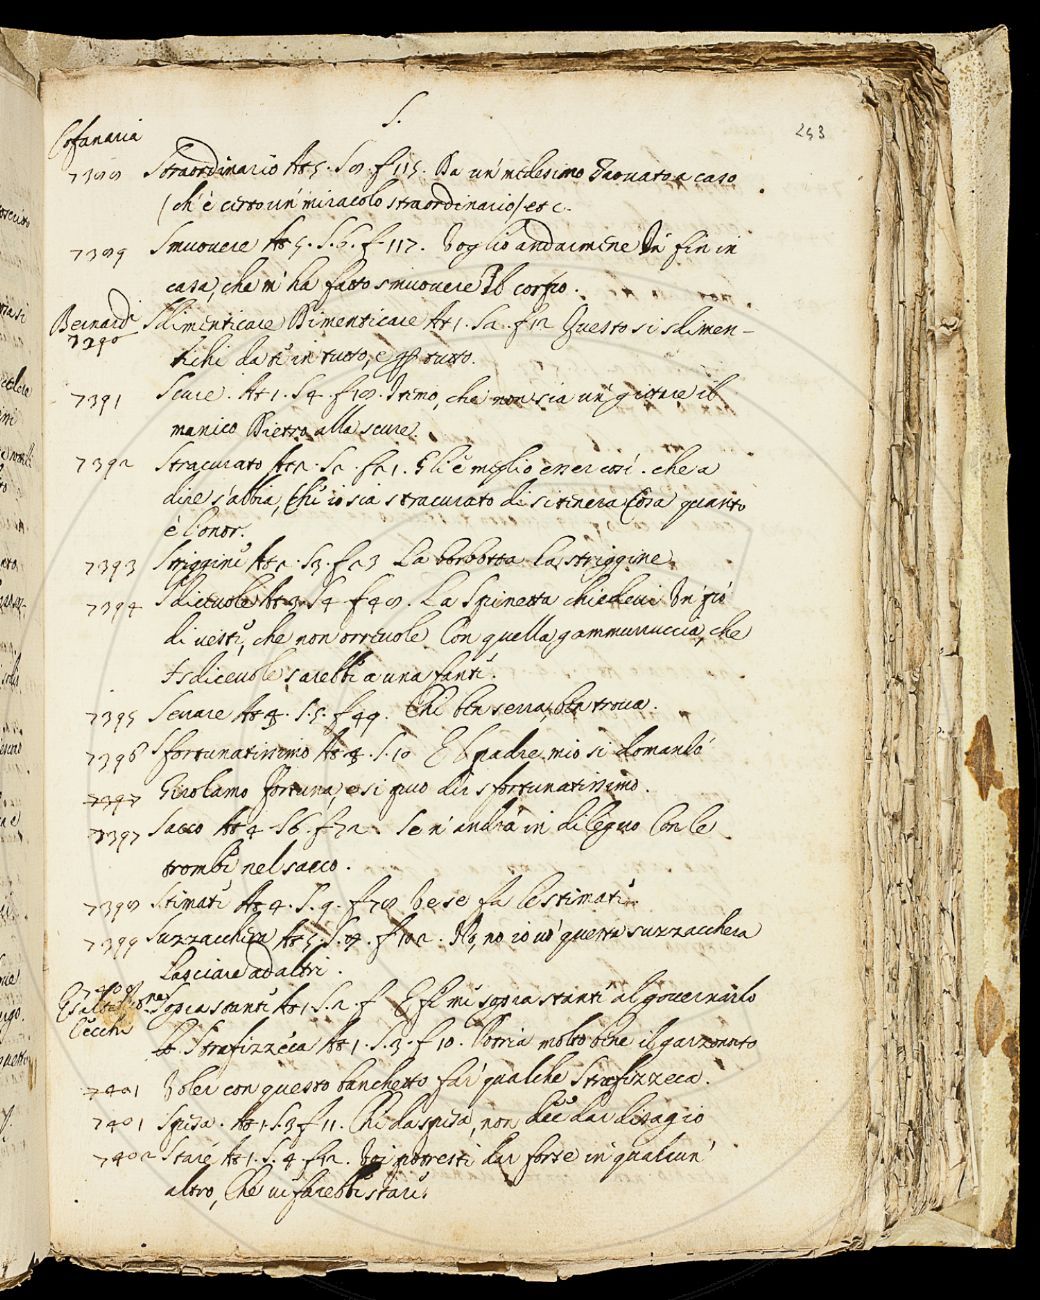 S.
253
Cofanaria
7388 Straordinario At 5. S 8. f 115. Da un' medesimo Trovato a caso
(ch' è certo un' miracolo straordinario) etc.
7389 Smuovere At 5. S. 6. f. 117. Voglio andarmene In fin in
casa, che m' ha fatto smuovere Il corpo.
Bernardi
7390 Sdimenticare Dimenticare At 1. S 2. f 12 Questo si sdimen-
tichi da te in tutto, e per tutto.
7391 Scure. At 1. S 4. f 18. Primo, che non sia un' gittare il
manico Dietro alla scure.
7392 Stracurato At 2. S 2. f 21. Gli è meglio esser così. che a
dire s'abbia, Che io sia stracurato di sì tenera Cosa quanto
è l'onor.
7393 Striggine At 2. S 3. f 23 La borbotta la striggine
7394 Sdicevole At 3. S 4 f 48. La Spinetta chiedevi Un più
di veste, che non orrevole Con quella gammurruccia, che
Isdicevole sarebbe a una fante.
7395 Serrare At 4. S. 5. f 49. Chi ben serra, ben trova.
7396 Sfortunatissimo At 4. S. 10 E 'l padre mio si domandò
7397 Girolamo Fortuna, e si può dir sfortunatissimo.
7397 Sacco At 4 S 6. f 72. Se n' andrà in dileguo Con le
trombe nel sacco.
7398 Stimate At 4. S. 9. f 78 Ve' se fa le stimate
7399 Suzzacchera At 5. S. 7. f 102. No, no io vo' questa suzzacchera
Lasciare ad altri.
7400
Cecchi
Soprastante At 1. S. 2. f E 'l mi' soprastante al governarlo
Strafizzeca At 1. S. 3. f 10. Porria molto bene il garzonetto
7401 Voler con questo banchetto far' qualche Strafizzeca.
7401 Spesa. At 1. S. 3 f 11. Chi da spesa, non dee dar disagio
7402 Stare At 1. S. 4. f 12. Voi potresti dar forse in qualcun'
altro, Che vi farebbe stare.